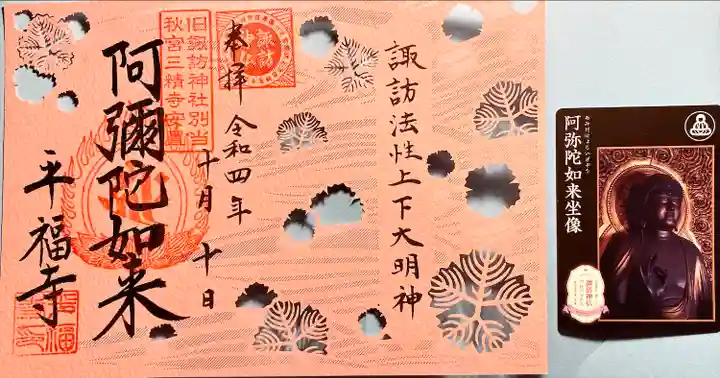 諏訪法性上下大明神
奉拝
令和四年
十月十日
諏訪
旧諏訪神社別当
秋宮三精寺安置
阿彌陀如来
平福寺
阿弥陀如来坐像